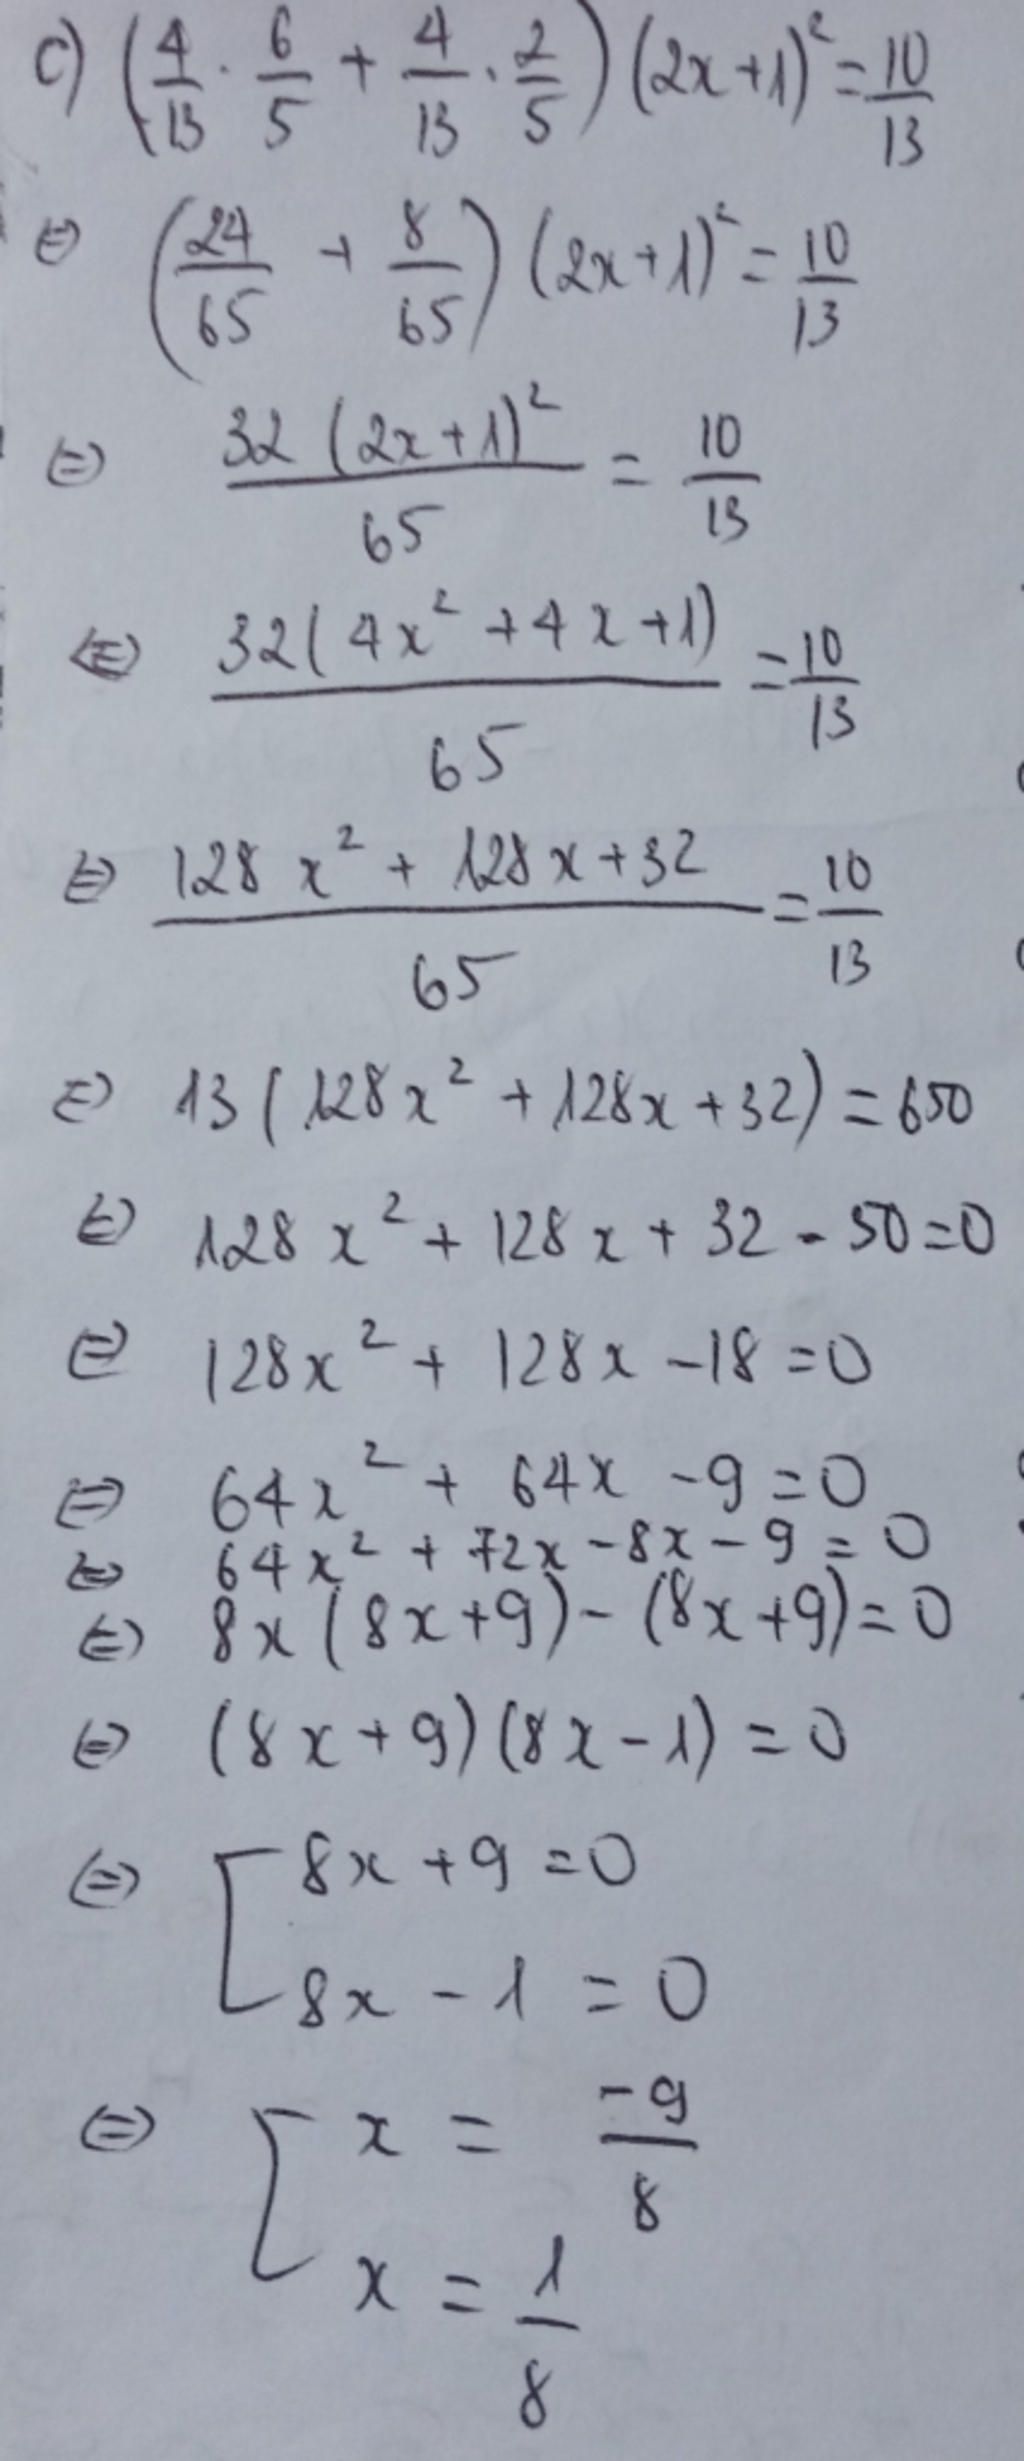 c) (4/13 . 6/5 + 4/13 . 2/5) (2x+1)² = 10/13
⇔ (24/65 + 8/65) (2x+1)² = 10/13
⇔ 32 (2x+1)² / 65 = 10/13
⇔ 32(4x² + 4x + 1) / 65 = 10/13
⇔ 128x² + 128x + 32 / 65 = 10/13
⇔ 13(128x² + 128x + 32) = 650
⇔ 128x² + 128x + 32 - 50 = 0
⇔ 128x² + 128x - 18 = 0
⇔ 64x² + 64x - 9 = 0
⇔ 64x² + 72x - 8x - 9 = 0
⇔ 8x(8x+9) - (8x+9) = 0
⇔ (8x+9)(8x-1) = 0
⇔ [ 8x + 9 = 0
8x - 1 = 0
⇔ [ x = -9/8
x = 1/8